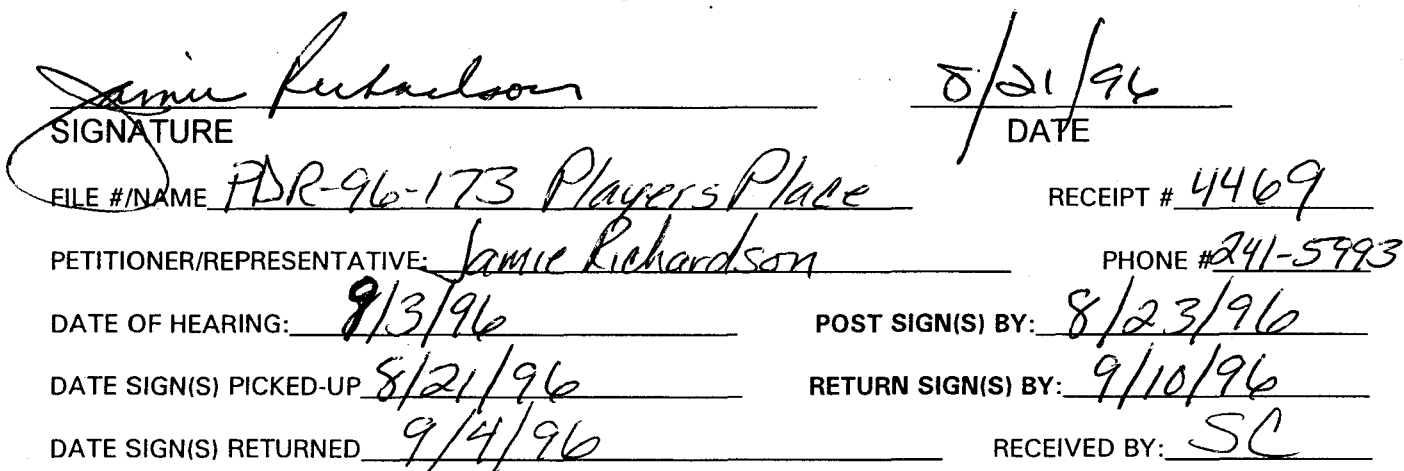 Jamie Richardson 8/21/96
SIGNATURE DATE
FILE #/NAME PDR-96-173 Players Place RECEIPT # 4469
PETITIONER/REPRESENTATIVE: Jamie Richardson PHONE # 241-5993
DATE OF HEARING: 9/3/96 POST SIGN(S) BY: 8/23/96
DATE SIGN(S) PICKED-UP 8/21/96 RETURN SIGN(S) BY: 9/10/96
DATE SIGN(S) RETURNED 9/4/96 RECEIVED BY: SC